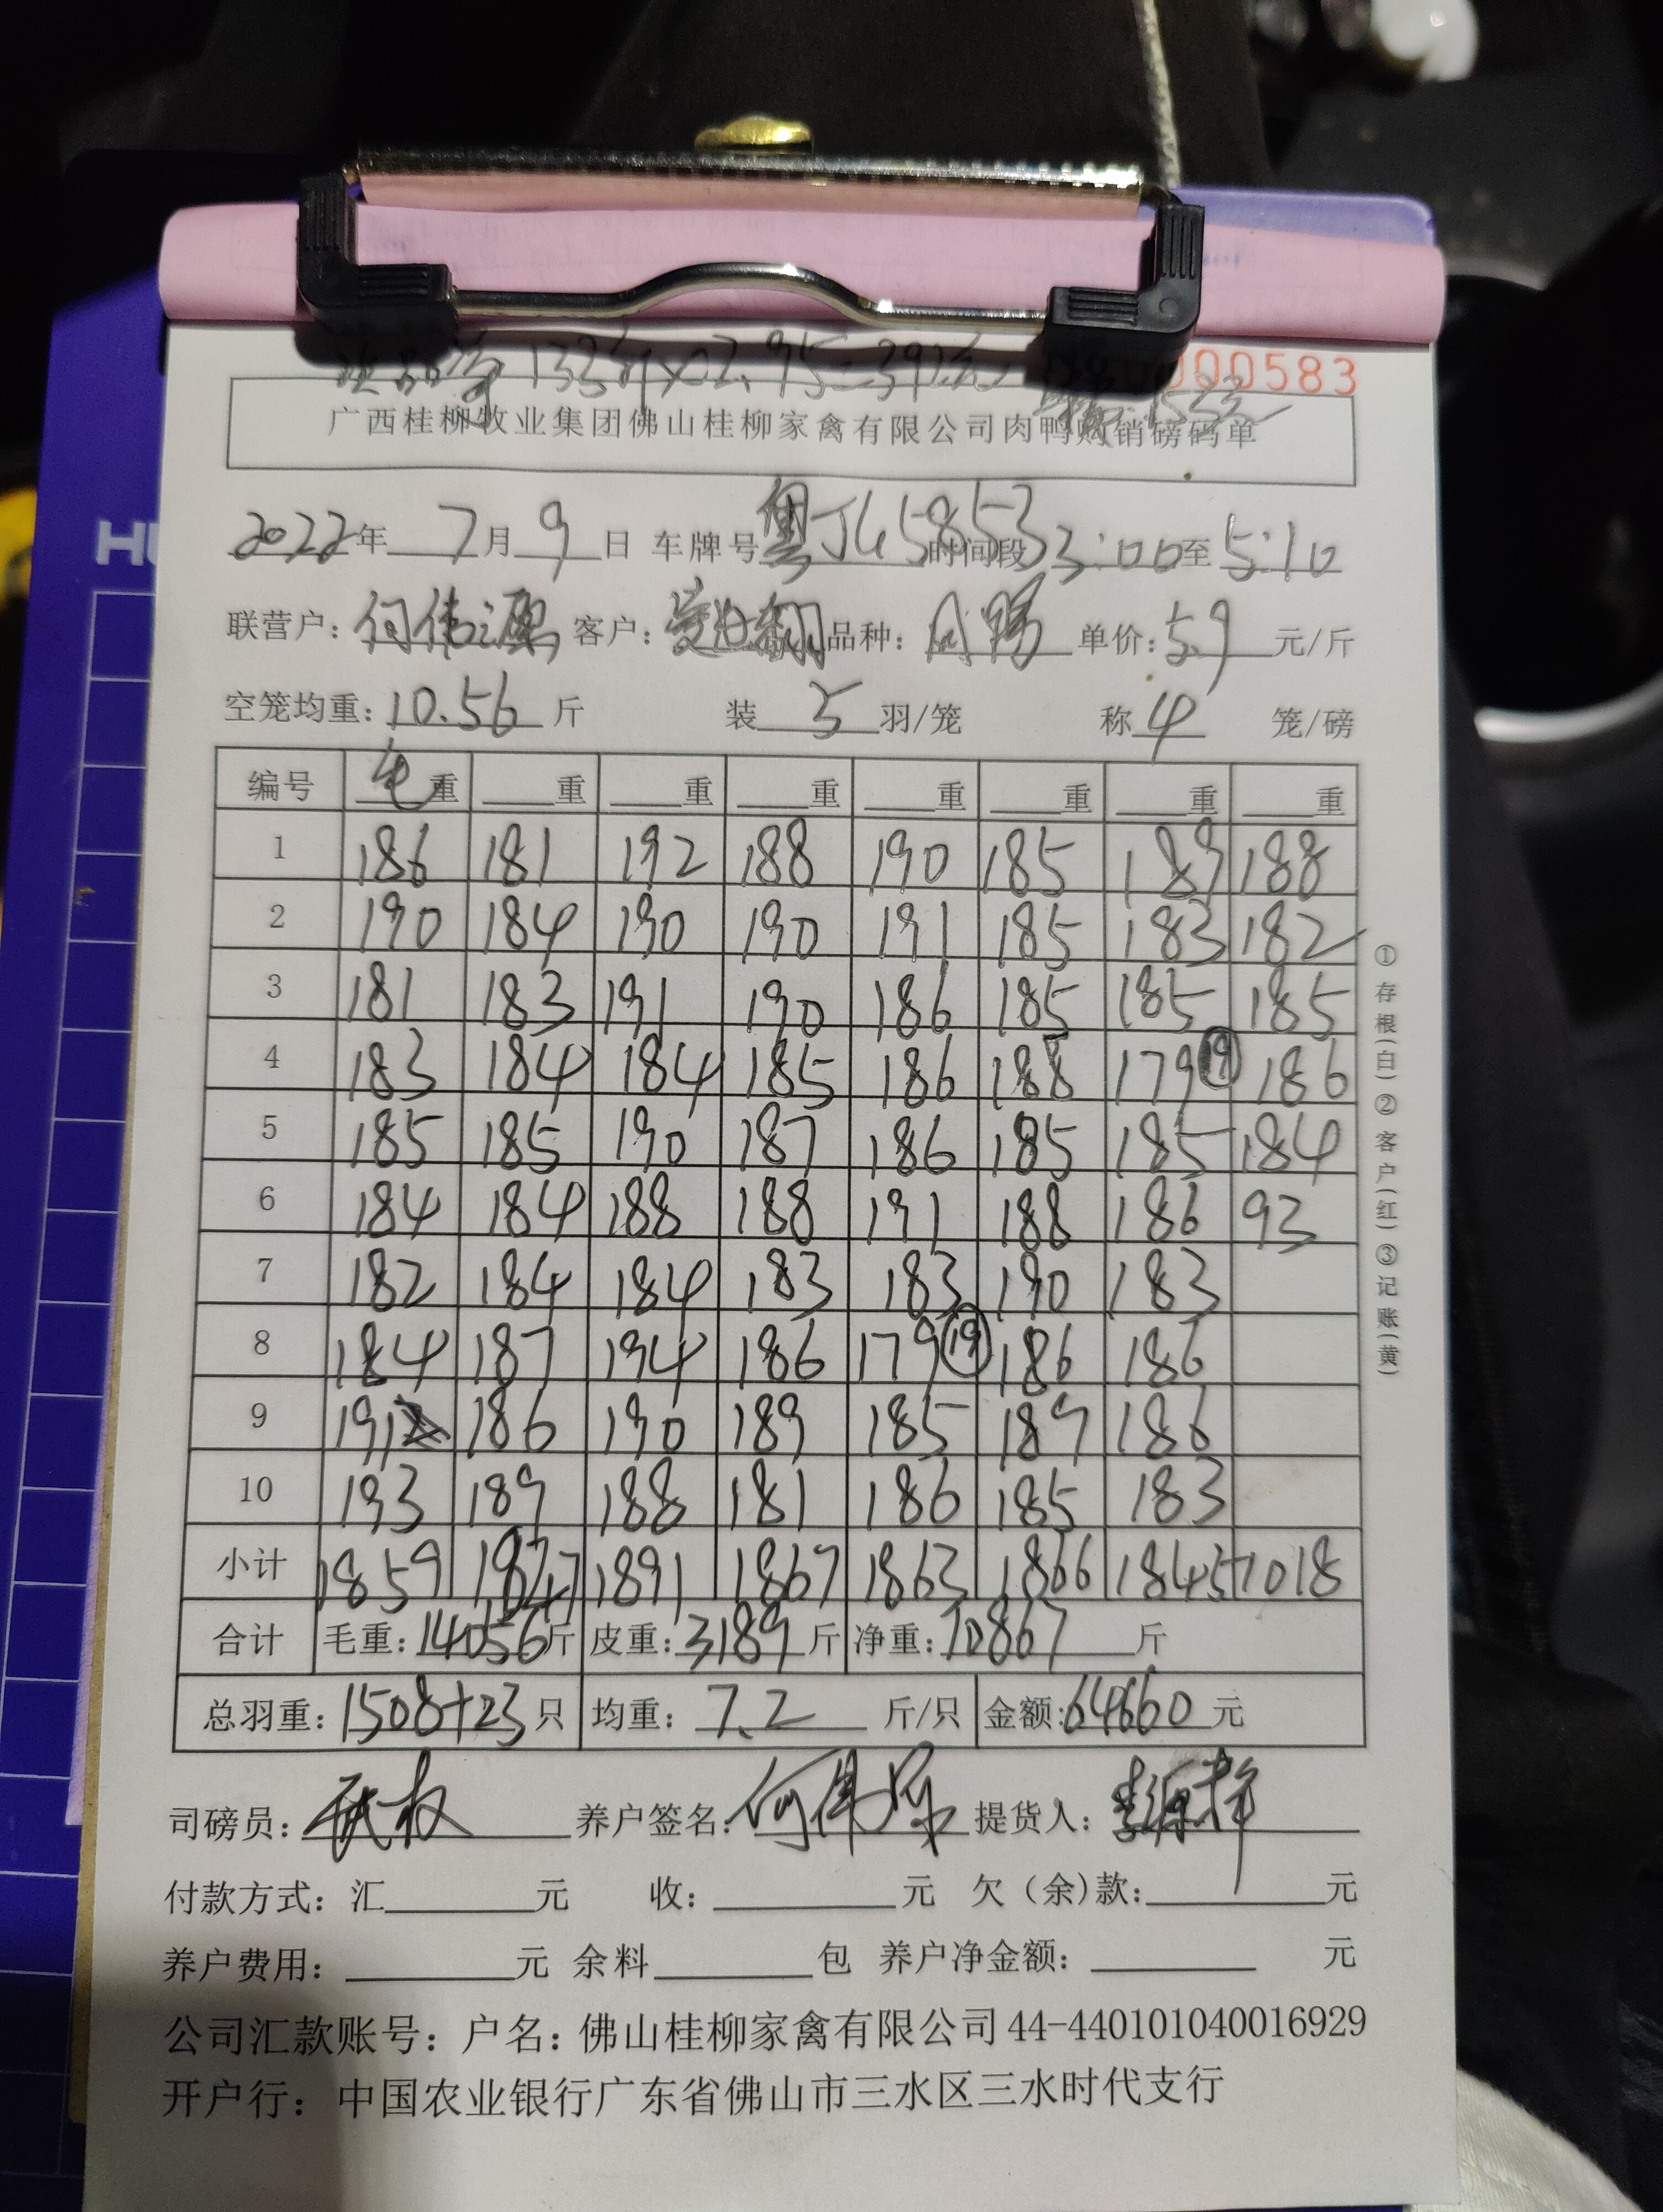 残品等 133斤×2.95=392元
0000583
广西桂柳牧业集团佛山桂柳家禽有限公司肉鸭购销磅码单
2022年 7月 9日 车牌号 粤J45853 时间段 3:00至 5:10
联营户: 何伟源 客户: 品种: 单价: 5.9 元/斤
空笼均重: 10.56 斤 装 5 羽/笼 称 4 笼/磅
编号 毛重 重 重 重 重 重 重 重
1 186 181 192 188 190 185 189 188
2 190 184 190 190 191 185 183 182
3 181 183 191 190 186 185 185 185
4 183 184 184 185 186 188 179⑲ 186
5 185 185 190 187 186 185 185 184
6 184 184 188 188 191 188 186 93
7 182 184 184 183 183 190 183
8 184 187 194 186 179⑲ 186 186
9 191 186 190 189 185 189 186
10 193 189 188 181 186 185 183
小计 1859 1847 1891 1867 1863 1866 1845 1018
合计 毛重: 14056斤 皮重: 3189斤 净重: 10867 斤
总羽重: 1508+23只 均重: 7.2 斤/只 金额: 64660元
司磅员: 养户签名: 何伟源 提货人:
付款方式: 汇 元 收: 元 欠（余）款: 元
养户费用: 元 余料 包 养户净金额: 元
公司汇款账号: 户名: 佛山桂柳家禽有限公司 44-440101040016929
开户行: 中国农业银行广东省佛山市三水区三水时代支行
①存根(白)②客户(红)③记账(黄)